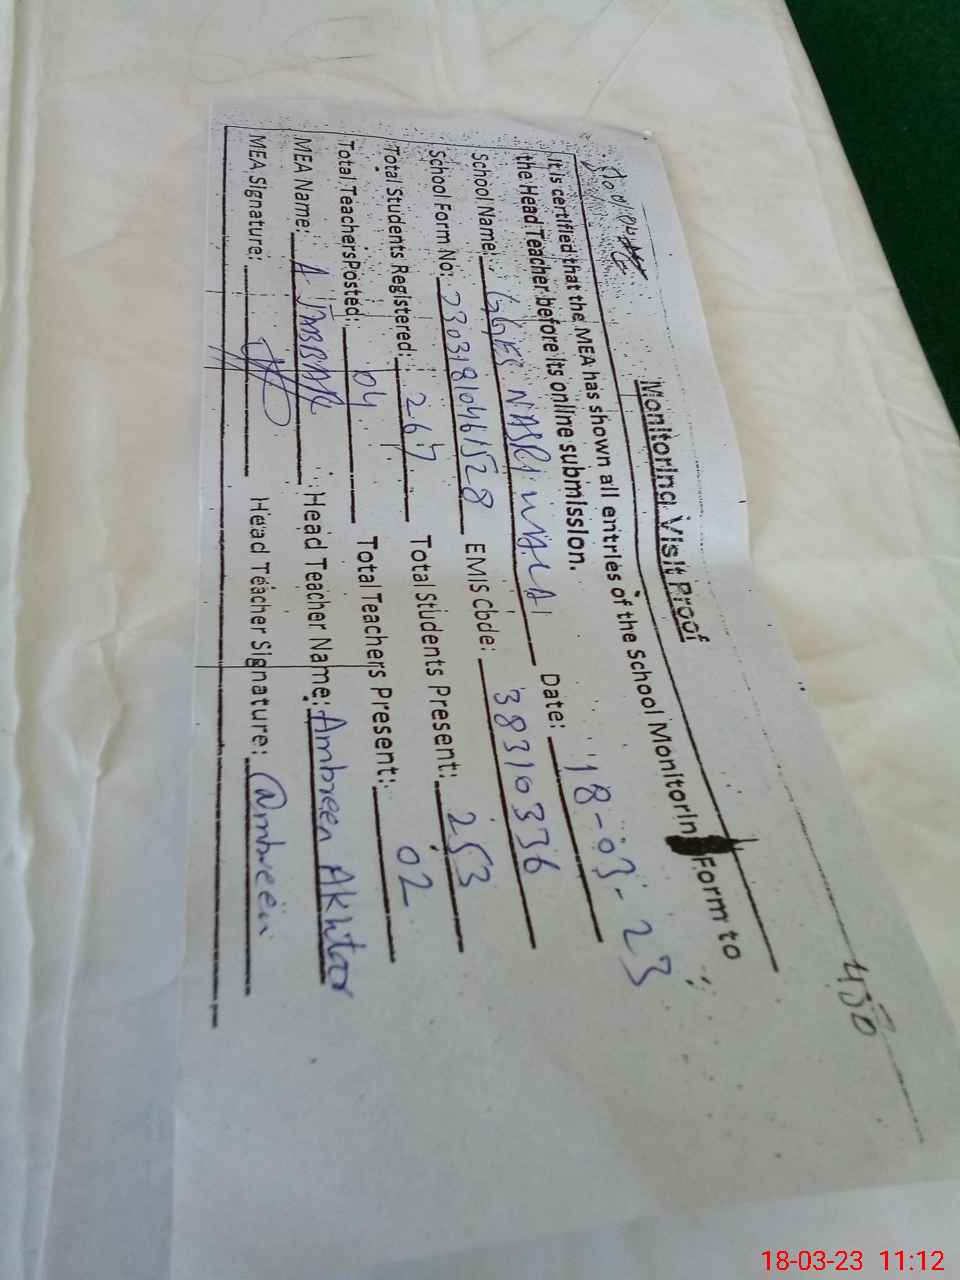 450
Monitoring Visit Proof
It is certified that the MEA has shown all entries of the School Monitorin Form to
the Head Teacher before its online submission.
School Name: GGES NASRI WALA Date: 18-03-23
School Form No: 23031810461528 EMIS Code: 38310336
Total Students Registered: 267 Total Students Present: 253
Total Teachers Posted: 04 Total Teachers Present: 02
MEA Name: A JABBAR Head Teacher Name: Ambreen Akhtar
MEA Signature: Head Teacher Signature: Ambreen
18-03-23 11:12